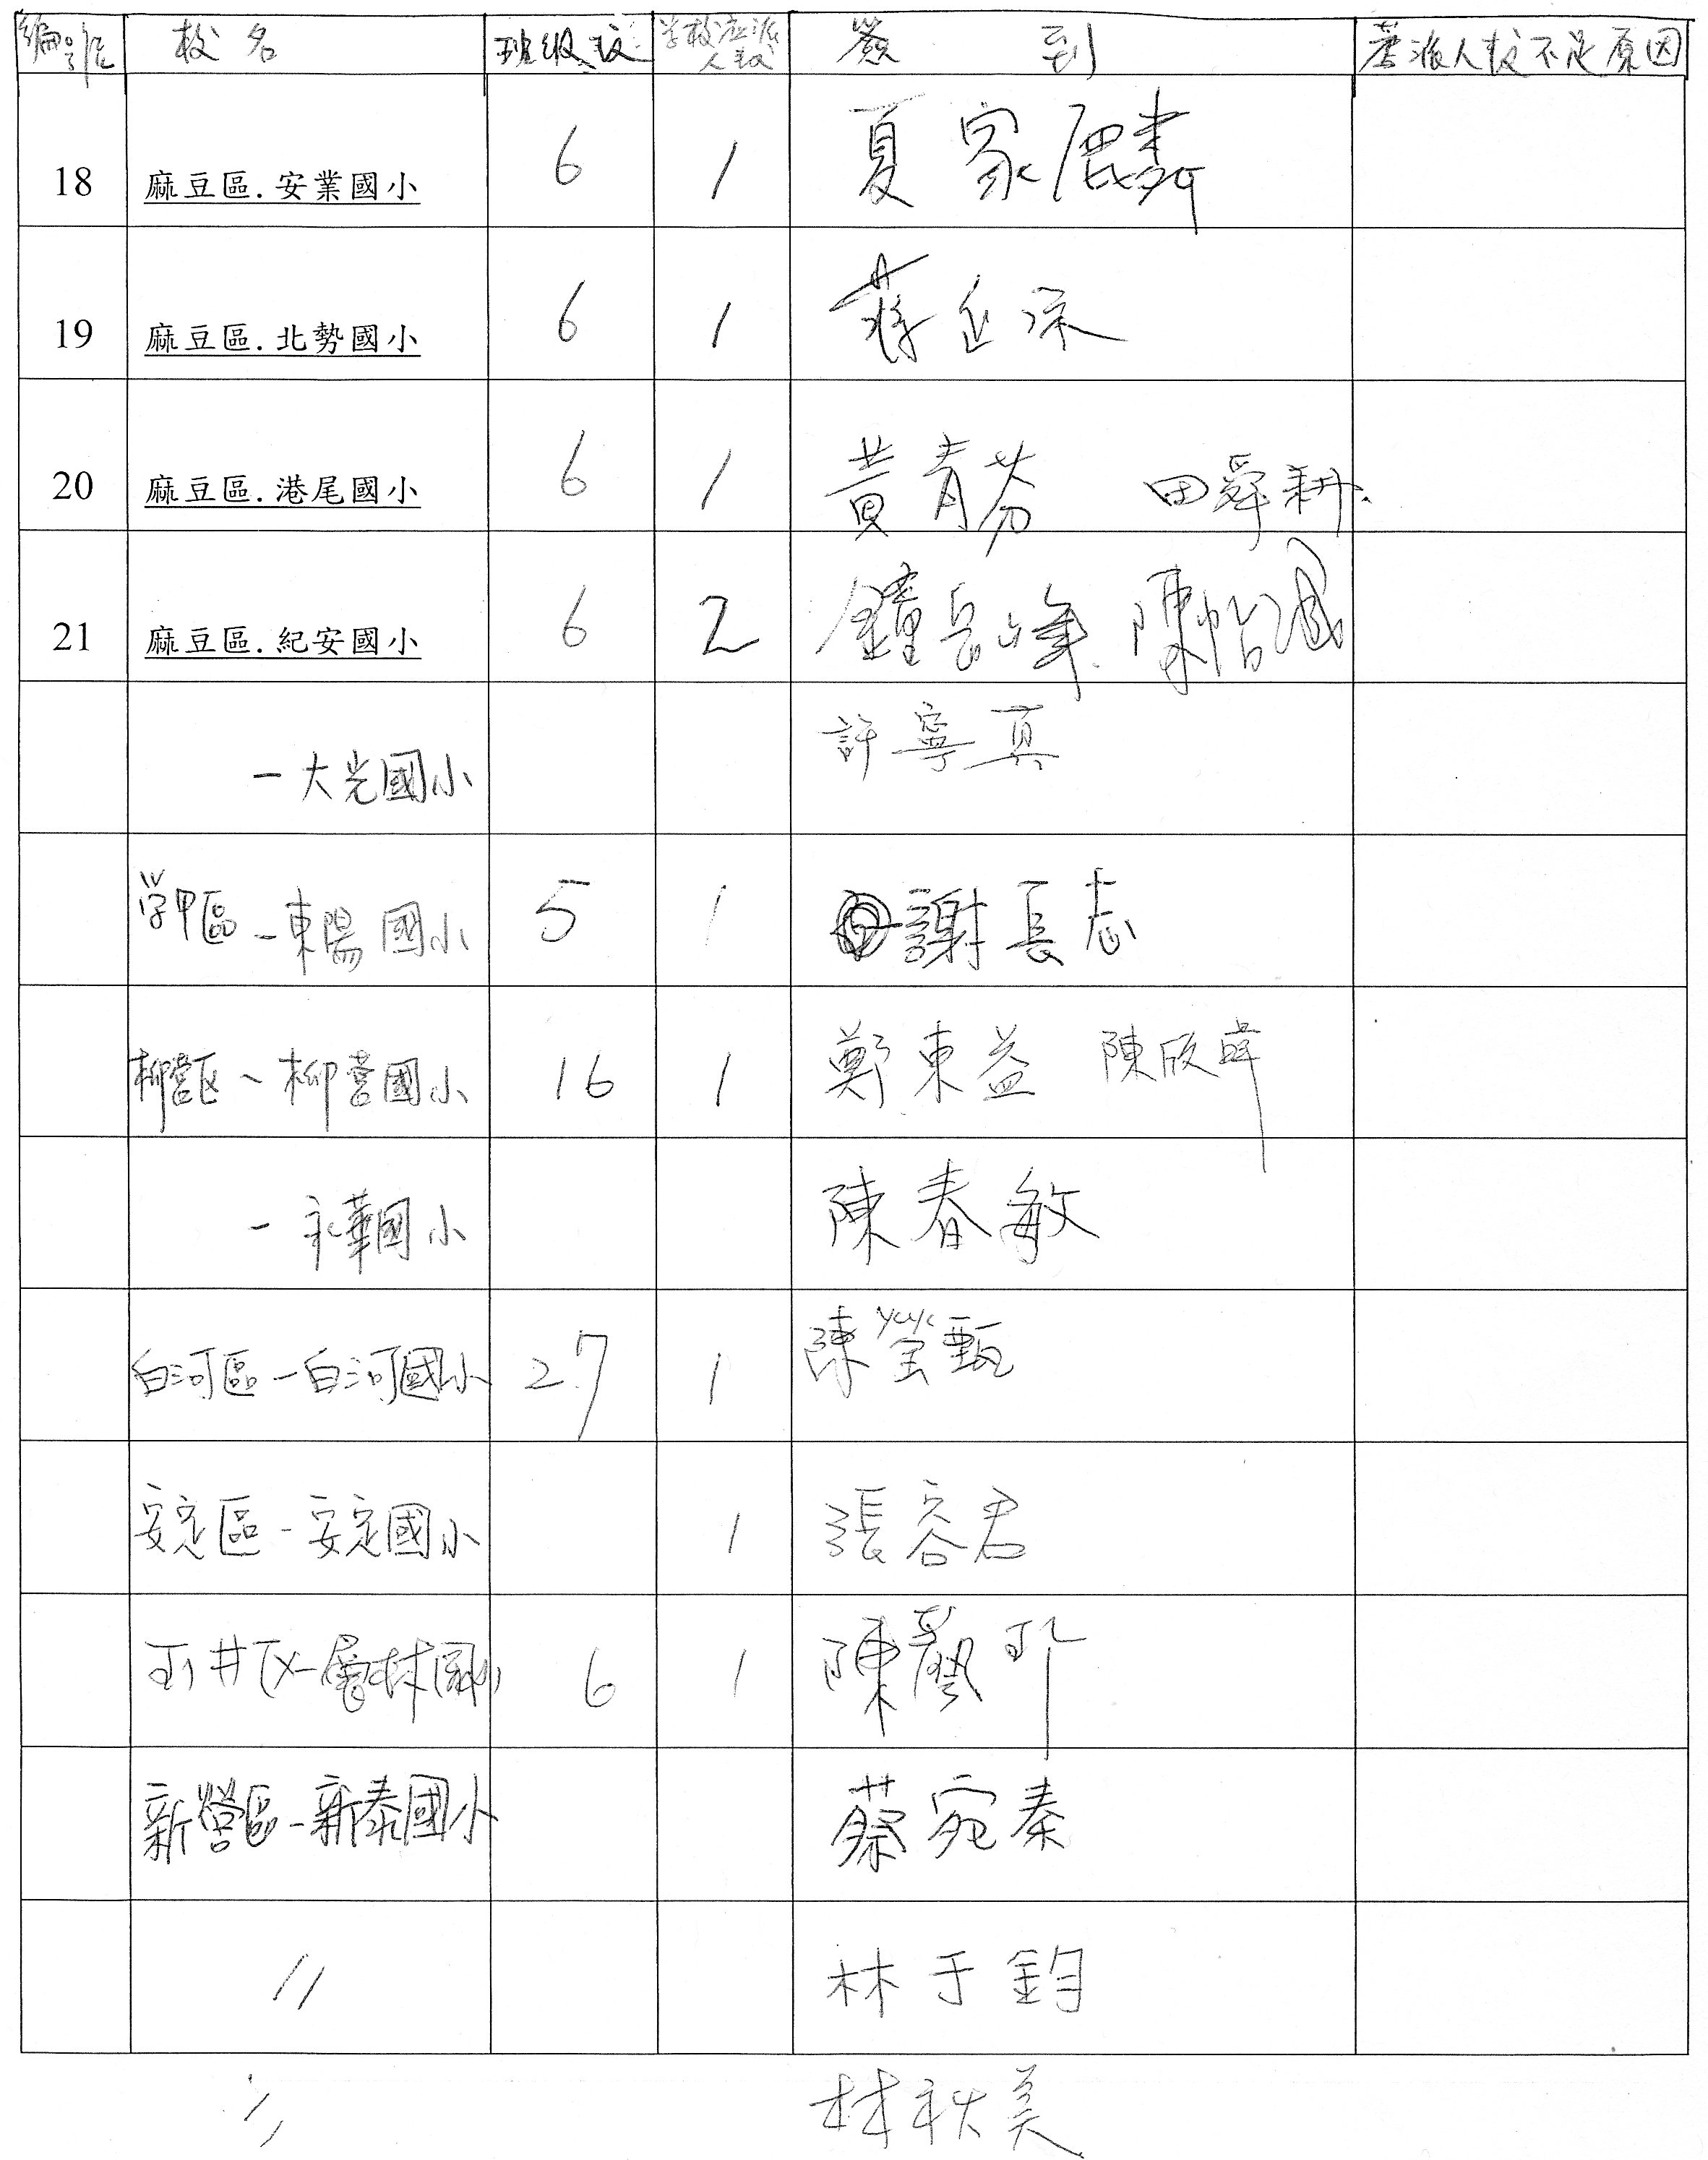 編號 校名 班級数 学校应派人数 簽到 若派人数不足原因
18 麻豆區.安業國小 6 1 夏家麟
19 麻豆區.北勢國小 6 1 蔣
20 麻豆區.港尾國小 6 1 黃青芬 田舜耕
21 麻豆區.紀安國小 6 2 鐘岳峰 陳怡
-大光國小 許寧真
学甲區-東陽國小 5 1 謝長志
柳营区~柳营國小 16 1 鄭東益 陳欣
-永華國小 陳春敏
白河區-白河國小 27 1 陳瑩甄
安定區-安定國小 1 張容君
玉井区-層林国小 6 1 陳藝
新營區-新泰國小 蔡宛秦
〃 林于鈞
〃 林秋美